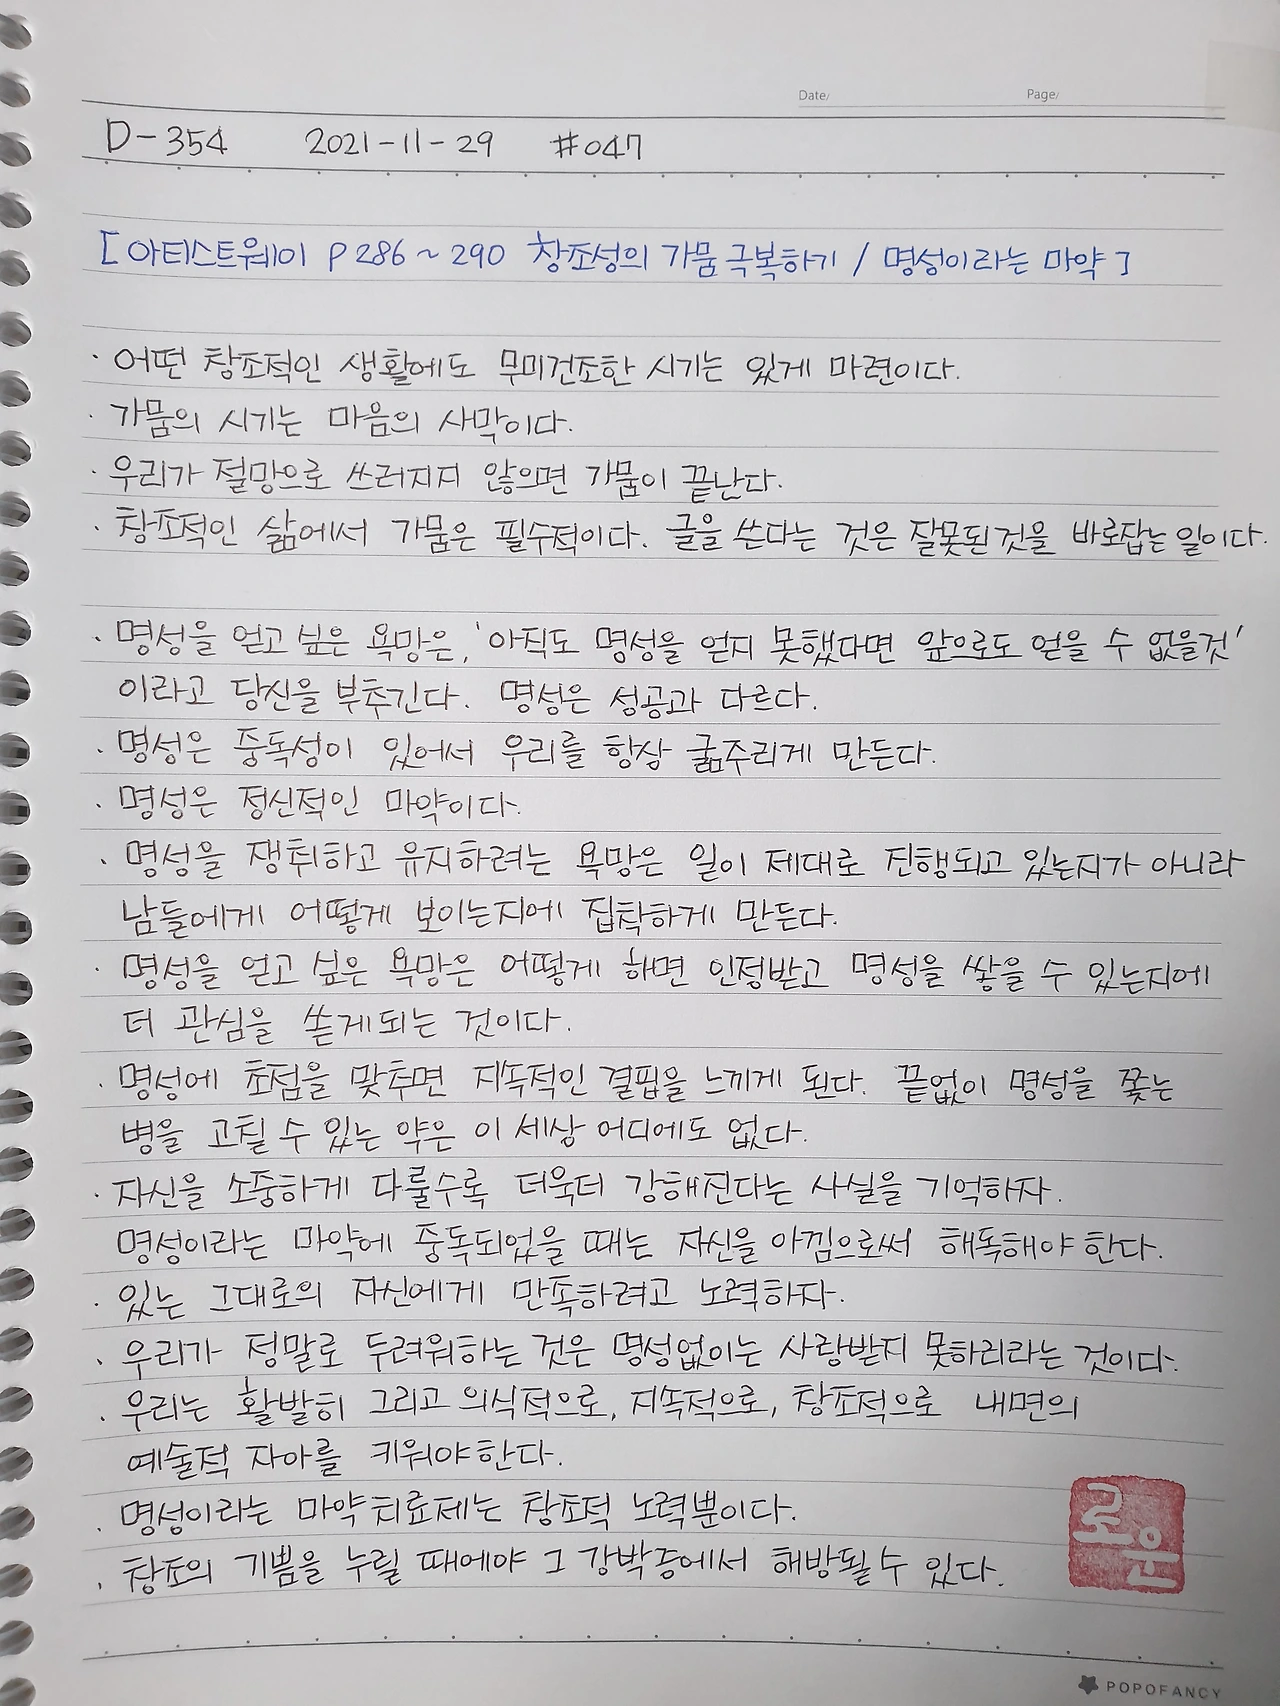 Date/ Page/
D-354 2021-11-29 #047
[아티스트웨이 P 286 ~ 290 창조성의 가뭄 극복하기 / 명성이라는 마약]
· 어떤 창조적인 생활에도 무미건조한 시기는 있게 마련이다.
· 가뭄의 시기는 마음의 사막이다.
· 우리가 절망으로 쓰러지지 않으면 가뭄이 끝난다.
· 창조적인 삶에서 가뭄은 필수적이다. 글을 쓴다는 것은 잘못된것을 바로잡는 일이다.
· 명성을 얻고 싶은 욕망은, '아직도 명성을 얻지 못했다면 앞으로도 얻을 수 없을것'
이라고 당신을 부추긴다. 명성은 성공과 다르다.
· 명성은 중독성이 있어서 우리를 항상 굶주리게 만든다.
· 명성은 정신적인 마약이다.
· 명성을 쟁취하고 유지하려는 욕망은 일이 제대로 진행되고 있는지가 아니라
남들에게 어떻게 보이는지에 집착하게 만든다.
· 명성을 얻고 싶은 욕망은 어떻게 하면 인정받고 명성을 쌓을 수 있는지에
더 관심을 쏟게되는 것이다.
· 명성에 초점을 맞추면 지속적인 결핍을 느끼게 된다. 끝없이 명성을 쫓는
병을 고칠 수 있는 약은 이 세상 어디에도 없다.
· 자신을 소중하게 다룰수록 더욱더 강해진다는 사실을 기억하자.
명성이라는 마약에 중독되었을 때는 자신을 아낌으로써 해독해야 한다.
· 있는 그대로의 자신에게 만족하려고 노력하자.
· 우리가 정말로 두려워하는 것은 명성없이는 사랑받지 못하리라는 것이다.
· 우리는 활발히 그리고 의식적으로, 지속적으로, 창조적으로 내면의
예술적 자아를 키워야한다.
· 명성이라는 마약치료제는 창조적 노력뿐이다.
· 창조의 기쁨을 누릴 때에야 그 강박증에서 해방될수 있다.
로운
POPOFANCY